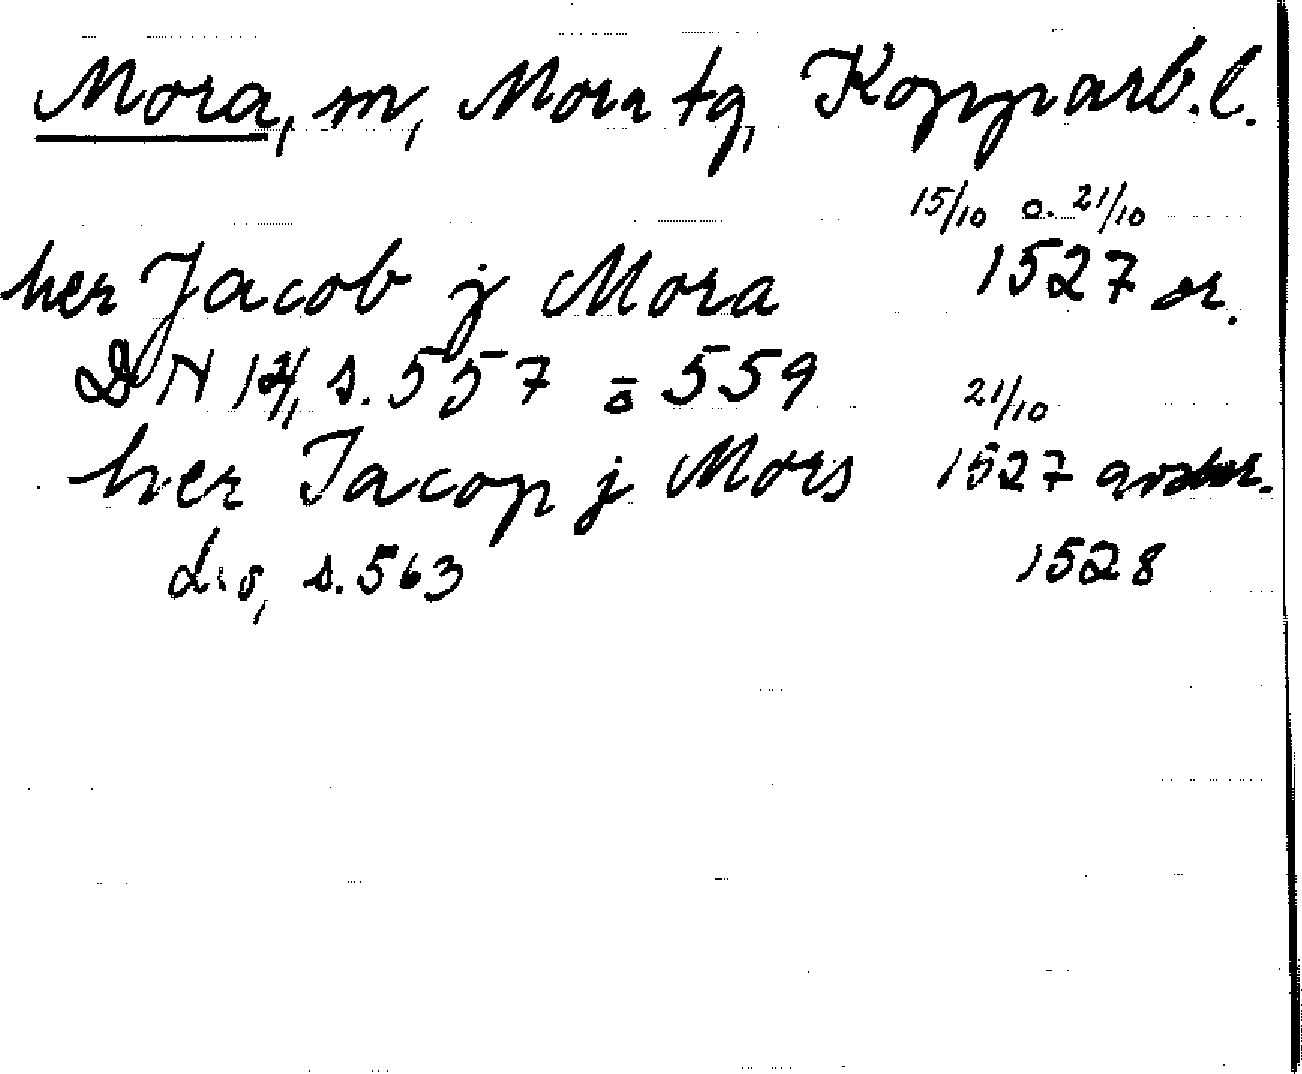 Mora, sn, Mora tg, Kopparb. l.
15/10 o. 21/10
her Jacob j Mora 1527 or.
DN 14, s. 557 o 559
21/10
her Jacop j Mors 1527
d:o, s. 563 1528